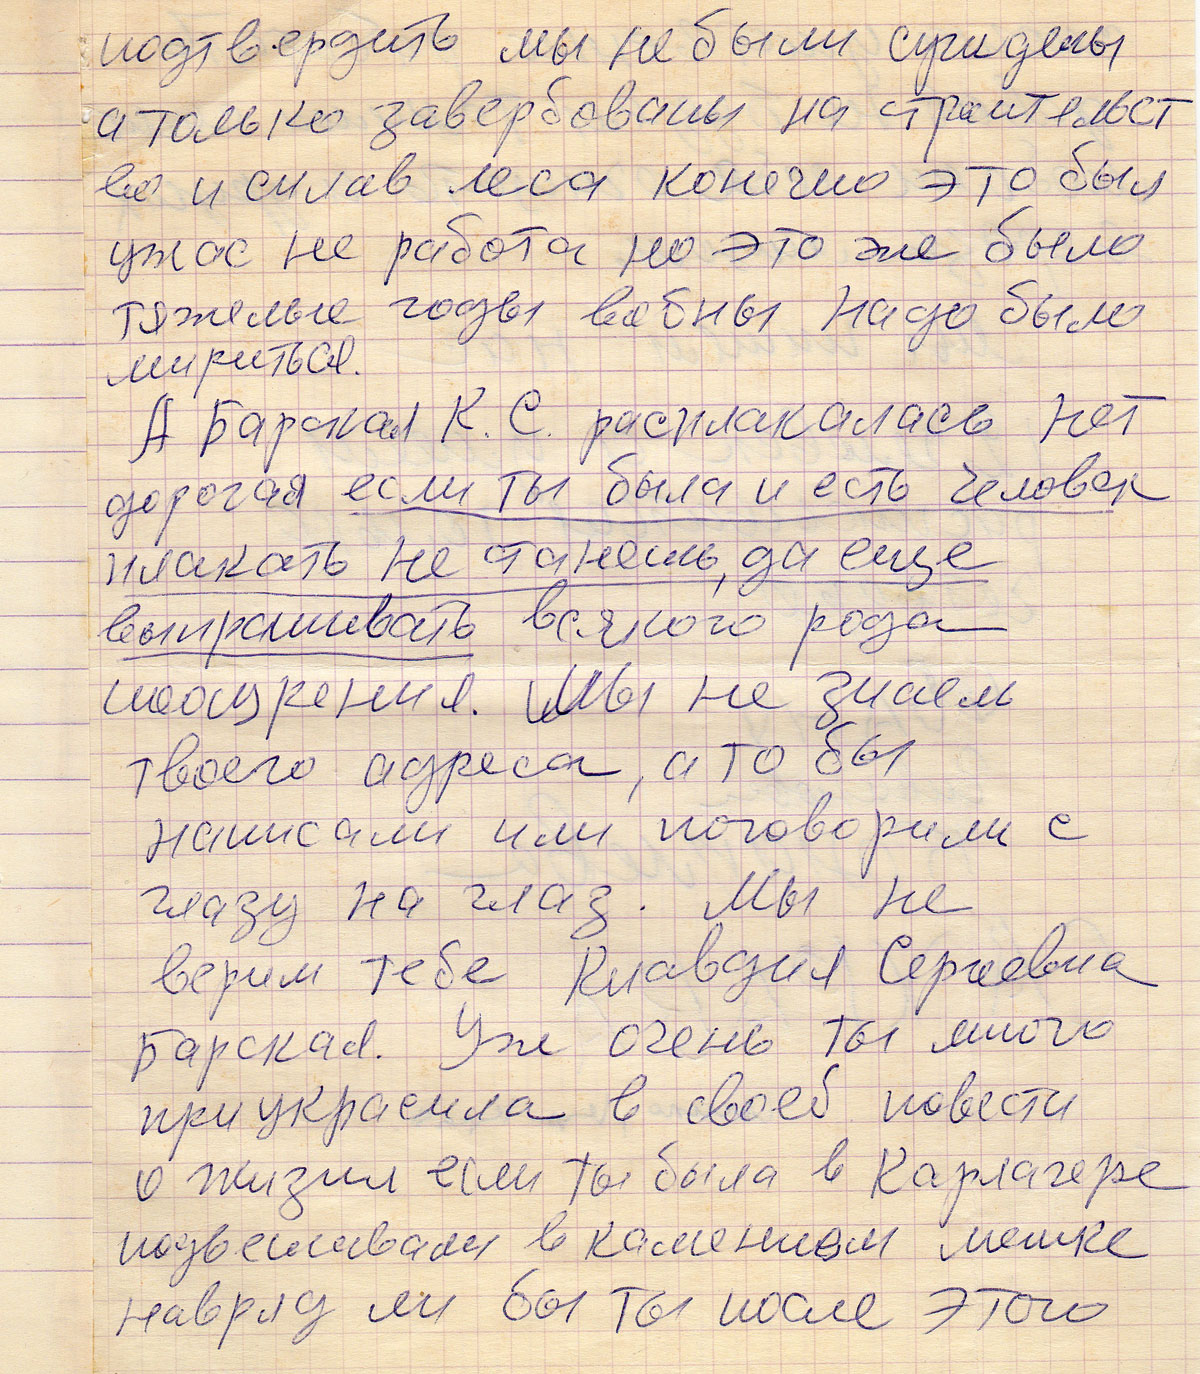 подтвердить мы не были сугидены
а только завербованы на строительст
во и сплав леса конечно это был
ужас не работа но это же было
тяжелые годы войны надо было
мириться.
А Барская К. С. расплакалась нет
дорогая если ты была и есть человек
плакать не станешь, да еще
выпрашивать всякого рода
поощрения. Мы не знаем
твоего адреса, а то бы
написали или поговорили с
глазу на глаз. Мы не
верим тебе Клавдия Сергеевна
Барская. Уж очень ты много
приукрасила в своей повести
о жизни если ты была в Карлагере
подвешивали в каменном мешке
навряд ли бы ты после этого